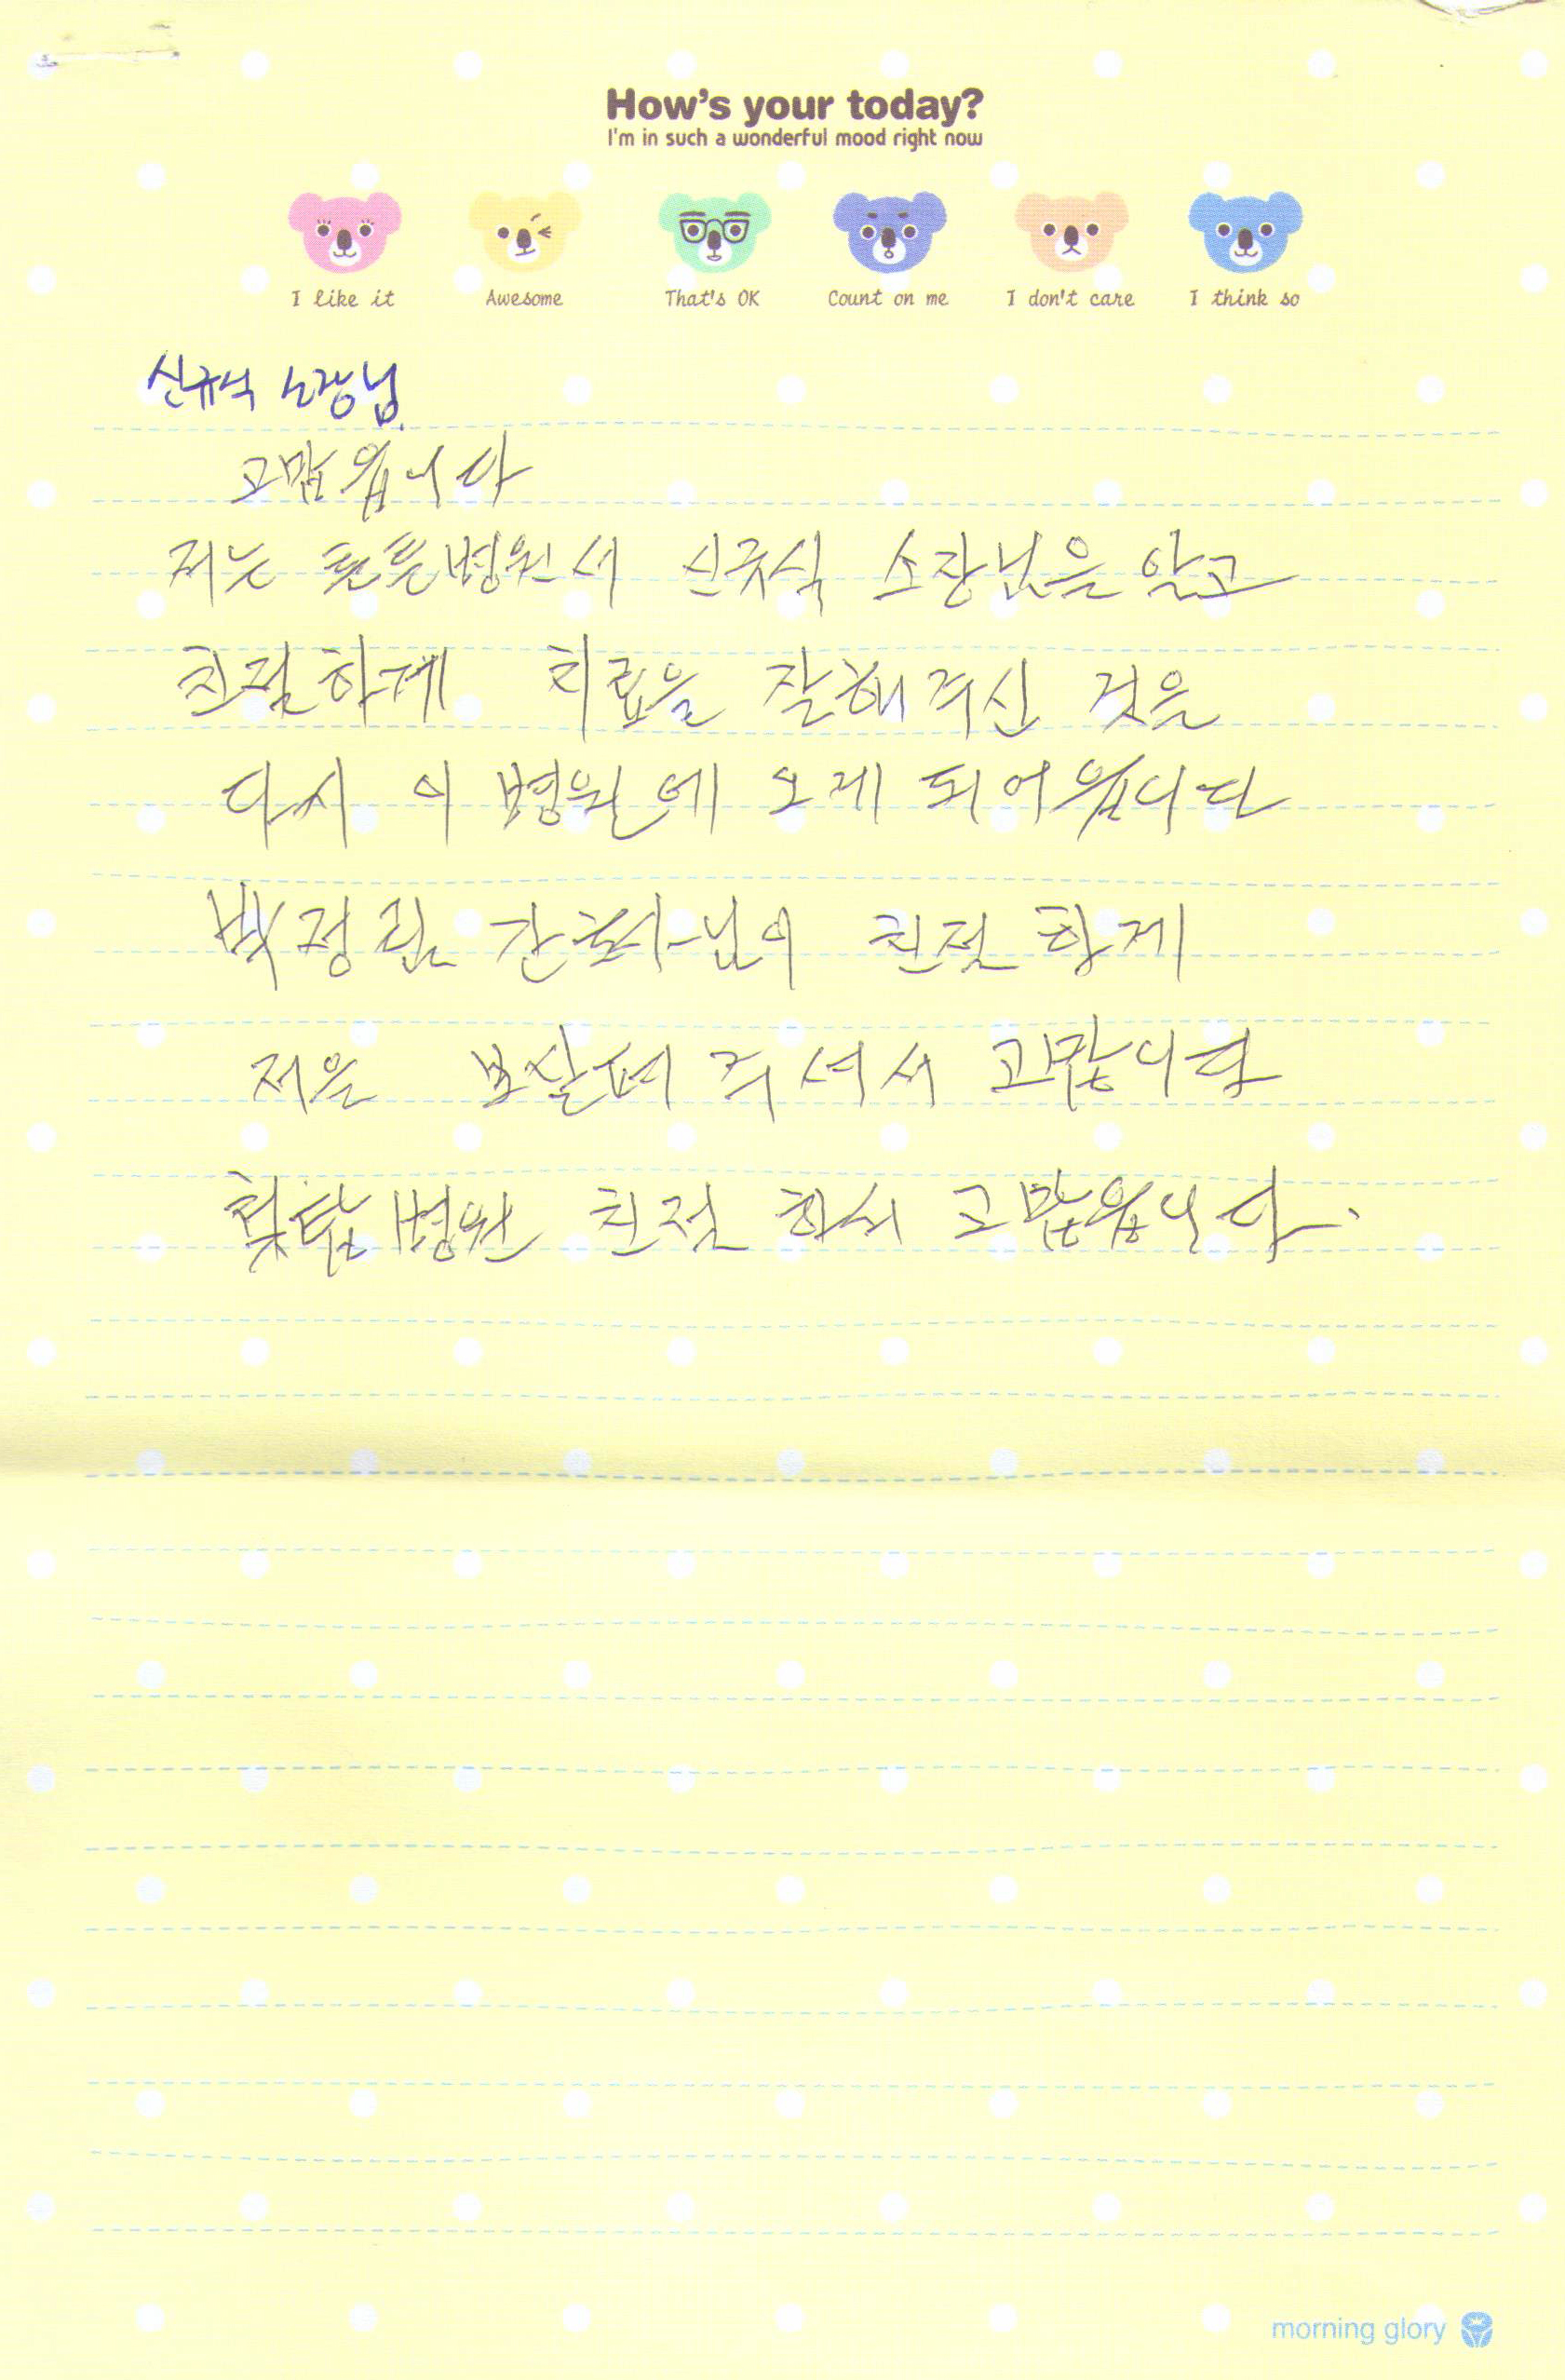 How's your today?
I'm in such a wonderful mood right now
I like it Awesome That's OK Count on me I don't care I think so
신규식 소장님
고맙읍니다
저는 튼튼병원서 신규식 소장님을 알고
친절하게 치료을 잘해주신 것은
다시 이 병원에 오게 되어읍니다
박정린 간호사님이 친절 하게
저을 보살펴 주셔서 고맙니다
병원 친절 하서 고맙읍니다.
morning glory